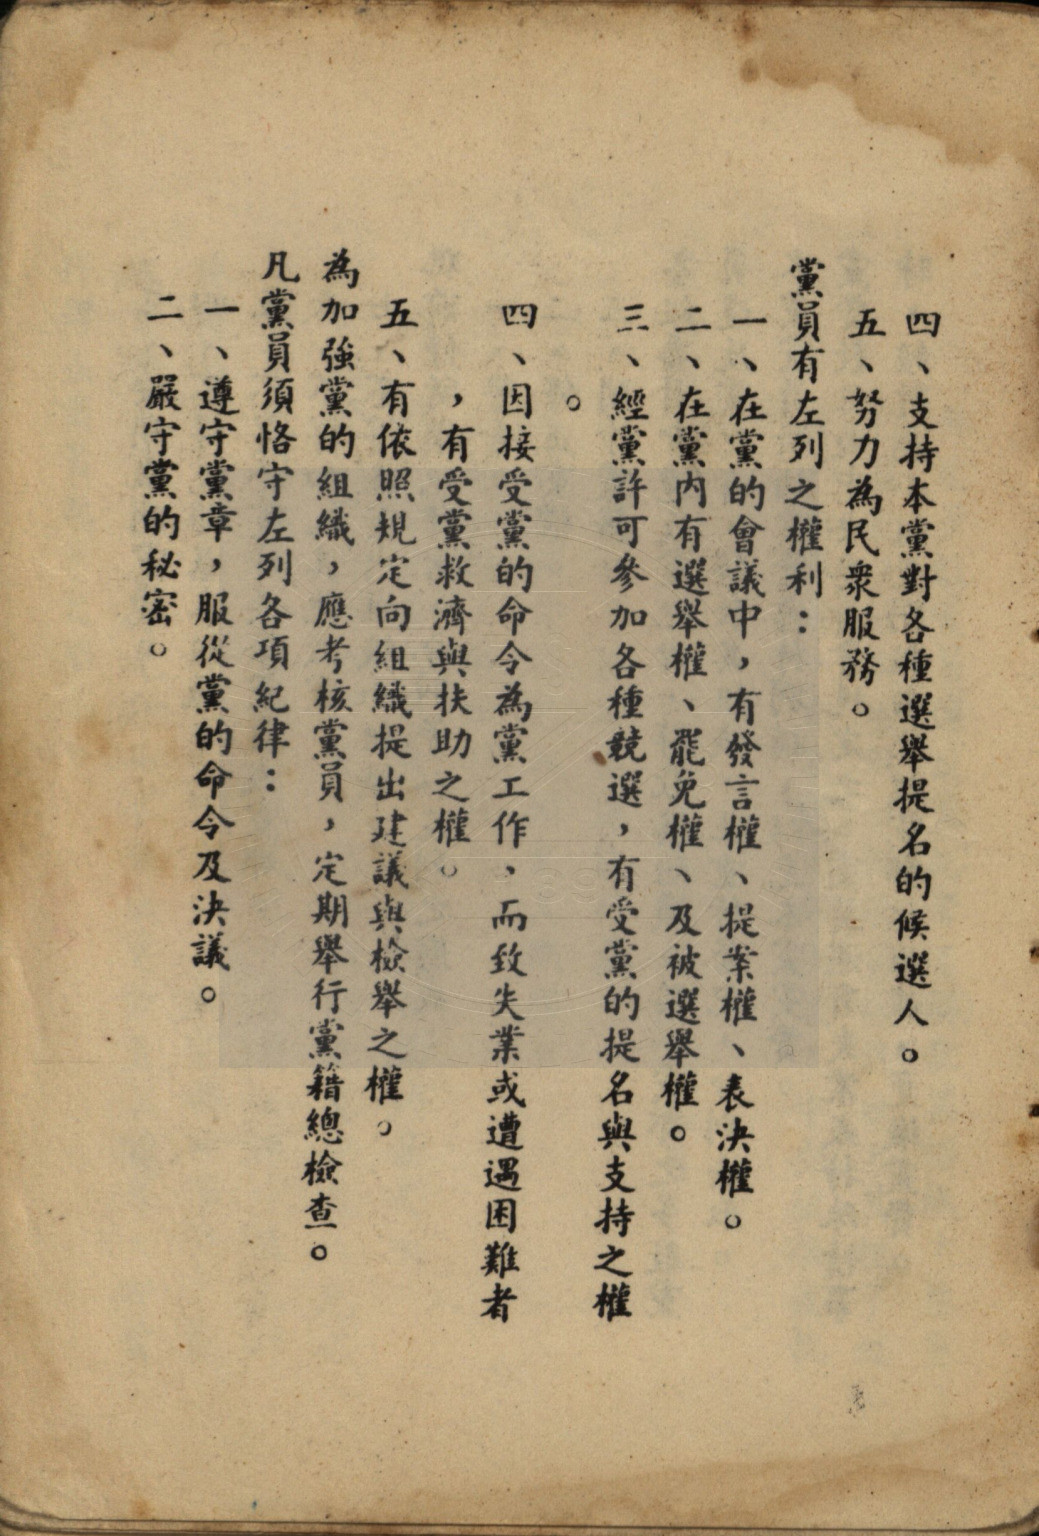 四、支持本黨對各種選舉提名的候選人。
五、努力為民衆服務。
黨員有左列之權利：
一、在黨的會議中，有發言權、提案權、表決權。
二、在黨內有選舉權、罷免權、及被選舉權。
三、經黨許可參加各種競選，有受黨的提名與支持之權
。
四、因接受黨的命令為黨工作、而致失業或遭遇困難者
，有受黨救濟與扶助之權。
五、有依照規定向組織提出建議與檢舉之權。
為加強黨的組織，應考核黨員，定期舉行黨籍總檢查。
凡黨員須恪守左列各項紀律：
一、遵守黨章，服從黨的命令及決議。
二、嚴守黨的秘密。